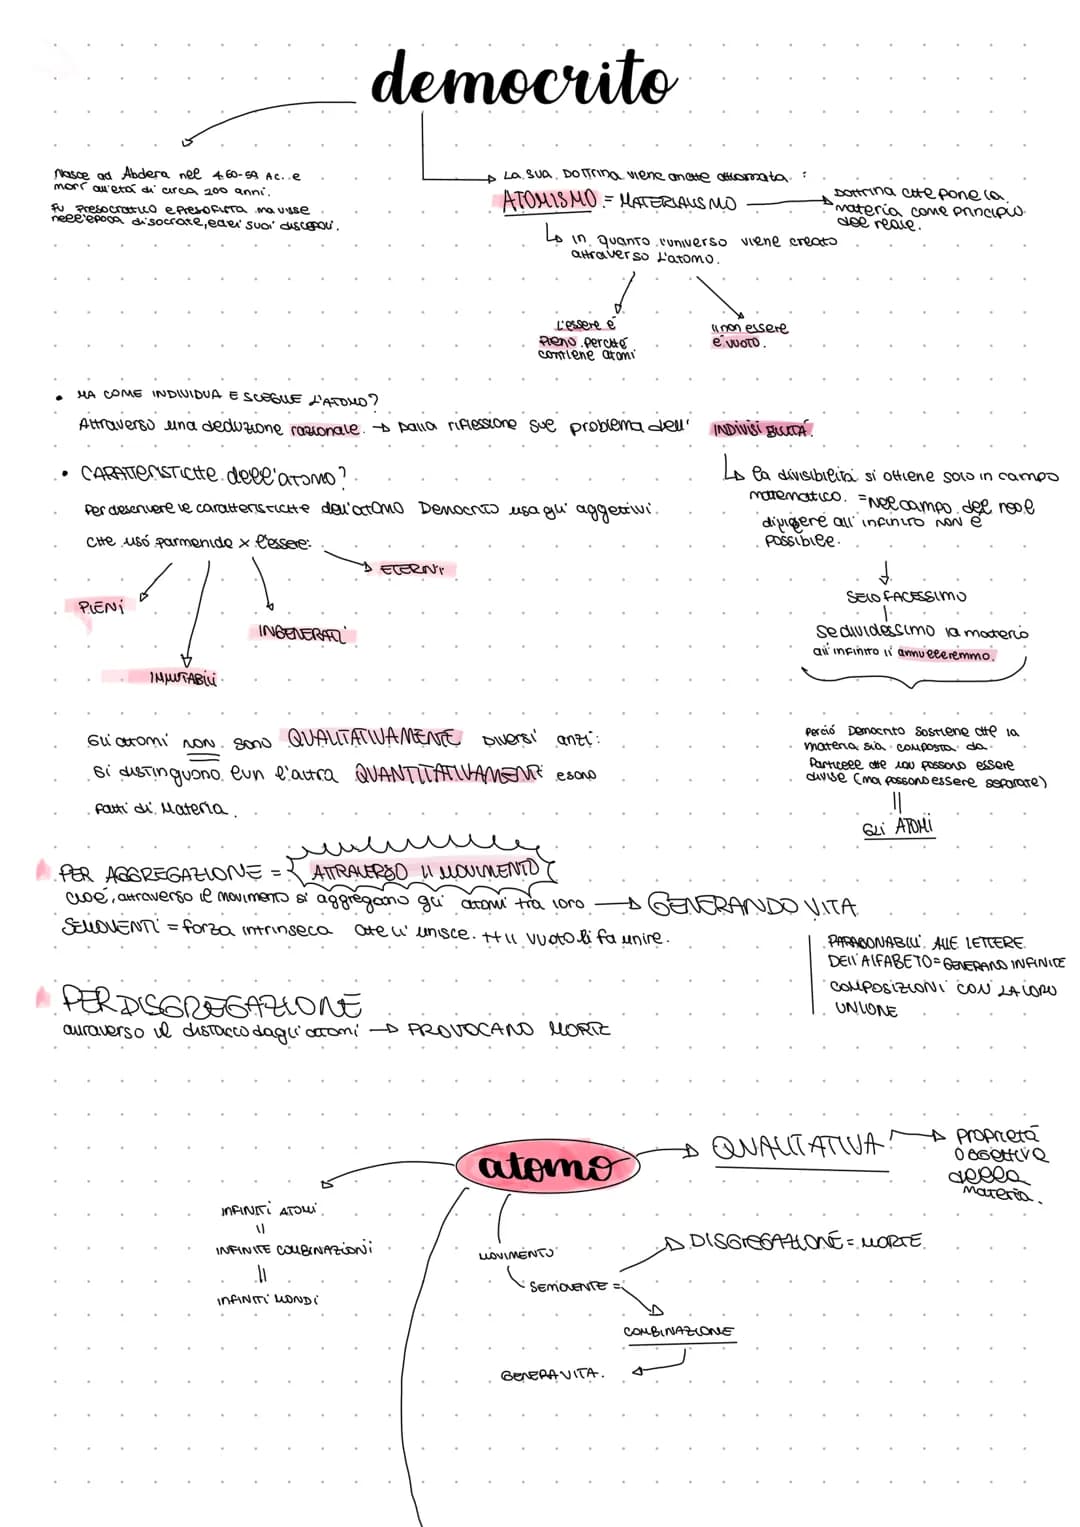 democrito
Nasce ad Abdera nel 460-59 AC.. e
morì all'età di circa 200 anni.
Fu Presocratico e Presofista ma visse
nell'epoca di socrate, e dei suoi discepoli.
La sua DOTTRINA viene anche chiamata :
ATOMISMO = MATERIALISMO
DOTTRINA CHE PONE LA
materia come principio
del reale.
in quanto l'universo viene creato
attraverso L'atomo.
L'essere è
PIENO perché
contiene atomi
il non essere
è vuoto.
• MA COME INDIVIDUA E SCEGLIE L'ATOMO?
Attraverso una deduzione razionale. → Dalla riflessione sul problema dell' INDIVISIBILITÀ.
• CARATTERISTICHE dell'atomo?
Per descrivere le caratteristiche dell'atomo Democrito usa gli aggettivi
CHE usò parmenide x l'essere:
ETERNI
PIENI
INGENERATI
IMMUTABILI
la divisibilità si ottiene solo in campo
matematico. = Nel campo del reale
dividere all'infinito NON è
POSSIBILE.
SE LO FACESSIMO
Se dividessimo la materia
all'infinito li annulleremmo.
Perciò Democrito sostiene che la
materia sia composta da
Particelle che non possono essere
divise (ma possono essere separate)
GLI ATOMI
Gli atomi NON sono QUALITATIVAMENTE DIVERSI anzi:
Si distinguono l'un l'altra QUANTITATIVAMENTE e sono
fatti di Materia.
PER AGGREGAZIONE = ATTRAVERSO IL MOVIMENTO
cioè, attraverso il movimento si aggregano gli atomi tra loro → GENERANDO VITA
SEMOVENTI = forza intrinseca che li unisce. ++ il vuoto li fa unire.
PARAGONABILI ALLE LETTERE
DELL'ALFABETO = GENERANO INFINITE
COMPOSIZIONI CON LA LORO
UNIONE
PER DISGREGAZIONE
attraverso il distacco dagli atomi → PROVOCANO MORTE
atomo
QUALITATIVA
Proprietà
Oggettiva
della
Materia.
INFINITI ATOMI
INFINITE COMBINAZIONI
INFINITI MONDI
MOVIMENTO
SEMOVENTE =
DISGREGAZIONE = MORTE
COMBINAZIONE
GENERA VITA.